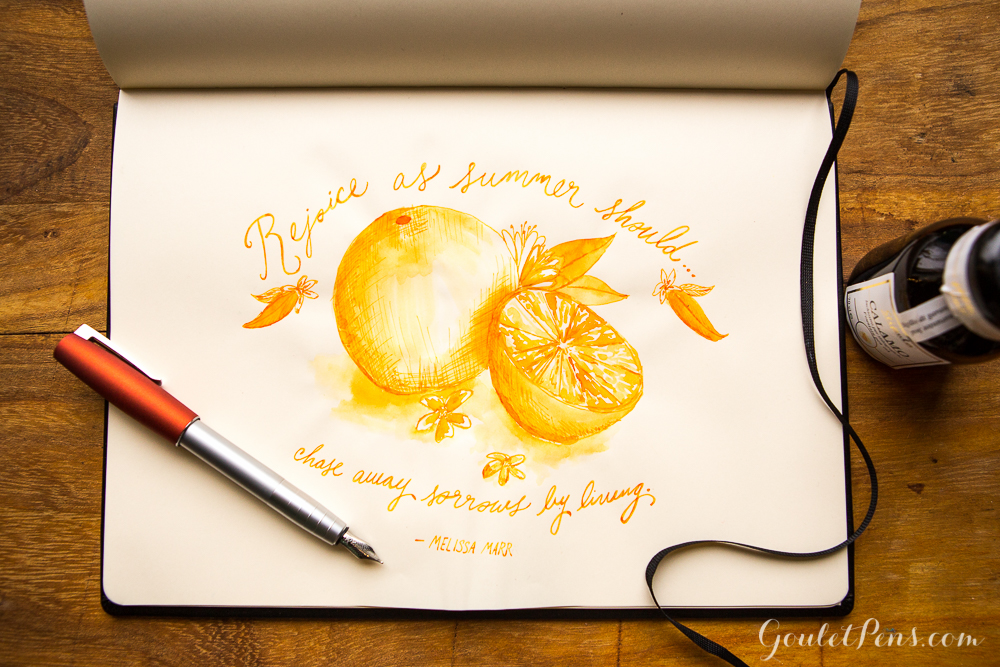 Rejoice as summer should...
chase away sorrows by living.
- MELISSA MARR
CALAMO
GouletPens.com